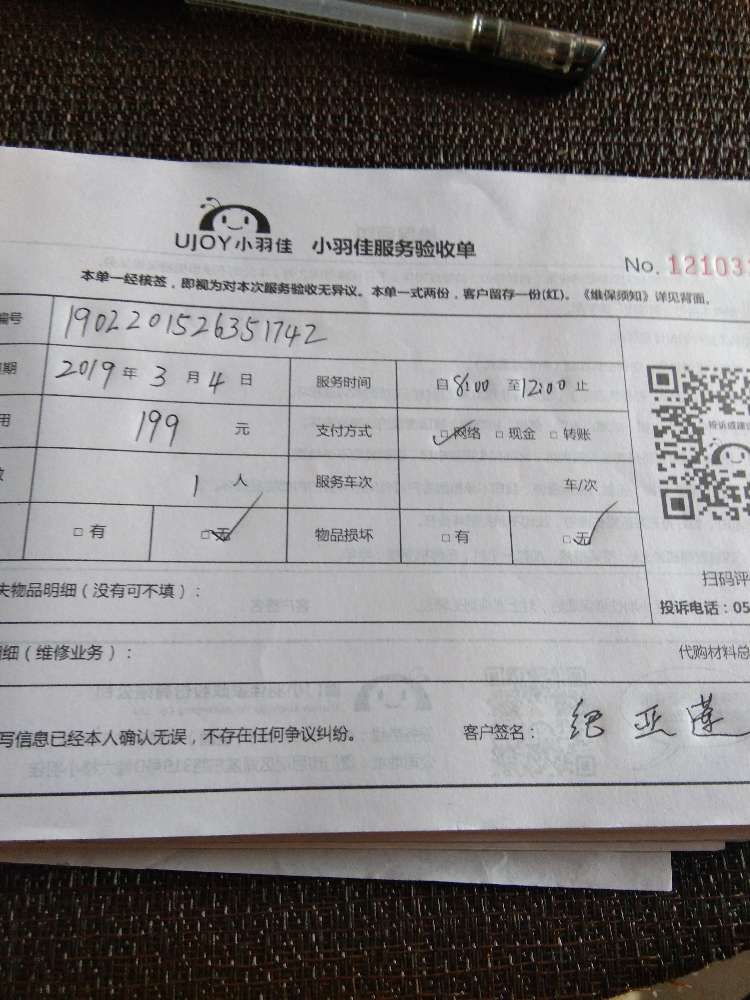 UJOY小羽佳 小羽佳服务验收单
No. 121031
本单一经核签，即视为对本次服务验收无异议。本单一式两份，客户留存一份(红)。《维保须知》详见背面。
编号 1902201526351742
期 2019 年 3 月 4 日 服务时间 自 8:00 至 12:00 止
用 199 元 支付方式 □网络 □现金 □转账
投诉或建议
数 1 人 服务车次 车/次
□有 □无 物品损坏 □有 □无
扫码评
失物品明细（没有可不填）：
投诉电话：05
细（维修业务）：
代购材料总
写信息已经本人确认无误，不存在任何争议纠纷。 客户签名： 纪亚莲